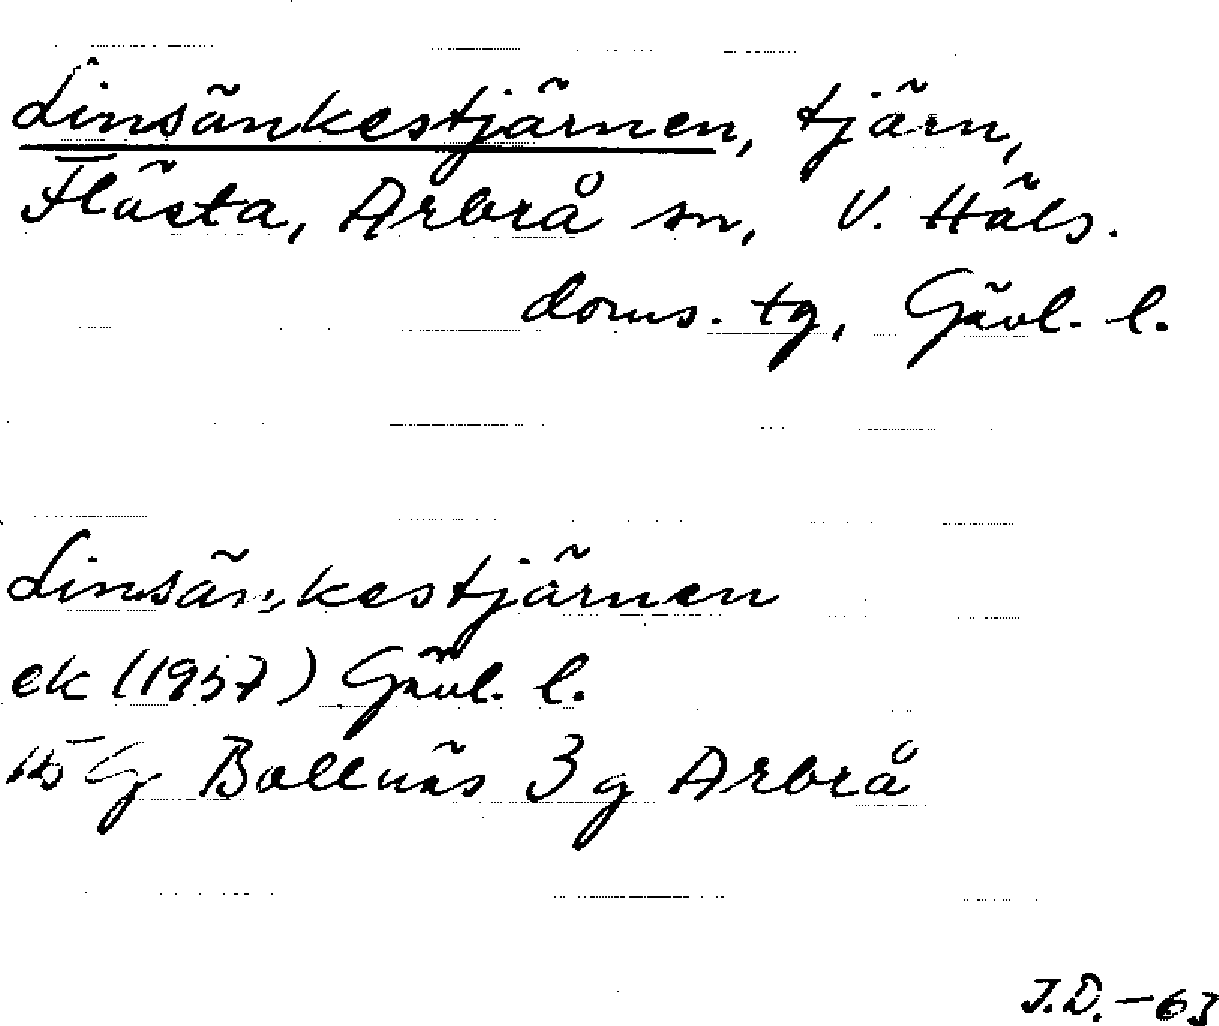 Linsänkestjärnen, tjärn,
Flästa, Arbrå sn, V. Häls.
doms. tg, Gävl. l.
Linsänkestjärnen
ek (1957) Gävl. l.
15 G Bollnäs 3 g Arbrå
J.D. – 63